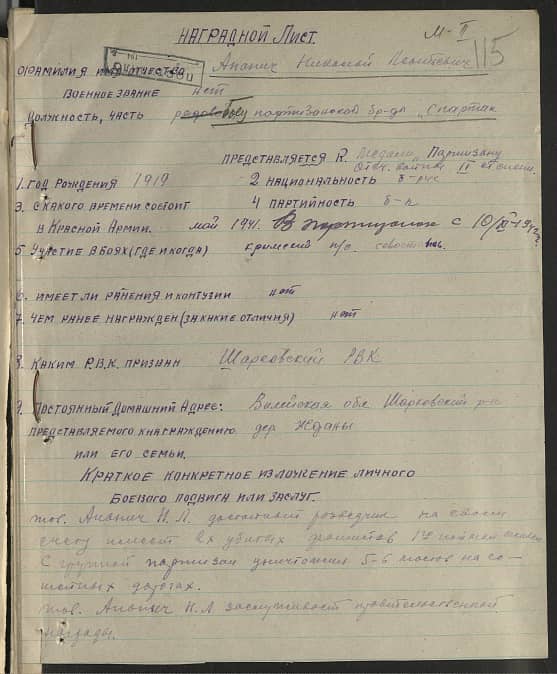 М-II
115
НАГРАДНОЙ Лист.
ФАМИЛИЯ ИМЯ ОТЧЕСТВО Апанич Николай
ВОЕННОЕ ЗВАНИЕ нет
Должность, часть партизанской бр-ды „Спартак
ПРЕДСТАВЛЯЕТСЯ К. Медали „Партизану
Отеч. войны II степени.
1. ГОД РОЖДЕНИЯ 1919 2 НАЦИОНАЛЬНОСТЬ
3. С КАКОГО ВРЕМЕНИ СОСТОИТ 4 ПАРТИЙНОСТЬ б-п
В КРАСНОЙ АРМИИ. май 1941. В с 10/
5. УЧАСТИЕ В БОЯХ (ГДЕ И КОГДА) п/с.
6. ИМЕЕТ ЛИ РАНЕНИЯ И КОНТУЗИИ нет
7. ЧЕМ РАНЕЕ НАГРАЖДЕН (ЗА КАКИЕ ОТЛИЧИЯ) нет
8. КАКИМ Р.В.К. ПРИЗВАН Шарковский РВК
9. Постоянный Домашний Адрес: Вилейская обл Шарковский р-н
ПРЕДСТАВЛЯЕМОГО К НАГРАЖДЕНИЮ дер Жданы
ИЛИ ЕГО СЕМЬИ.
КРАТКОЕ КОНКРЕТНОЕ ИЗЛОЖЕНИЕ ЛИЧНОГО
БОЕВОГО ПОДВИГА ИЛИ ЗАСЛУГ.
тов. Апанич Н. Л. разведчик на своем
счету имеет убитых фашистов
С группой партизан уничтожил 5-6 мостов на
дорогах.
тов. Апанич Н. Л. заслуживает правительственной
награды.